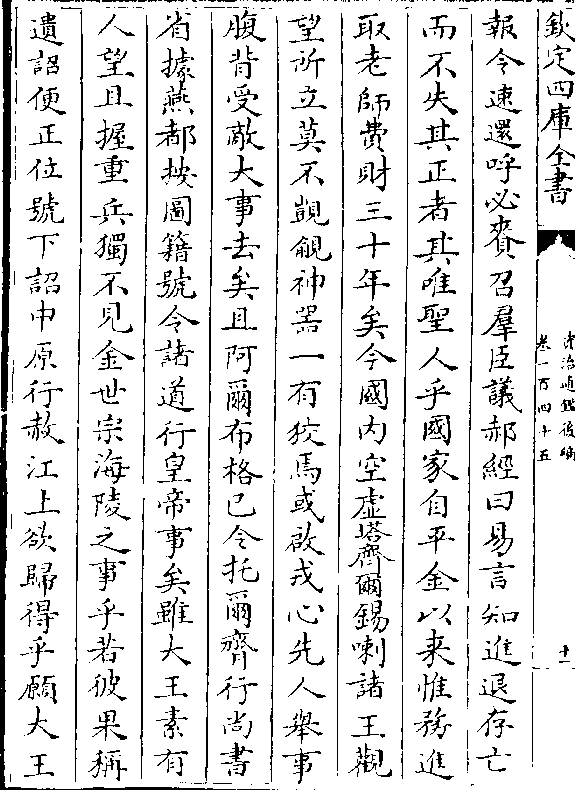 欽定四庫全書
資治通鑑後編
卷一百四十五
十一
報令速還呼必賚召羣臣議郝經曰易言知進退存亡
而不失其正者其唯聖人乎國家自平金以來惟務進
取老師費財三十年矣今國内空虚塔齊爾錫喇諸王觀
望所立莫不覬覦神器一有狡焉或啟戎心先人舉事
腹背受敵大事去矣且阿爾布格已令托爾齊行尚書
省據燕都按圖籍號令諸道行皇帝事矣雖大王素有
人望且握重兵獨不見金世宗海陵之事乎若彼果稱
遺詔便正位號下詔中原行赦江上欲歸得乎願大王